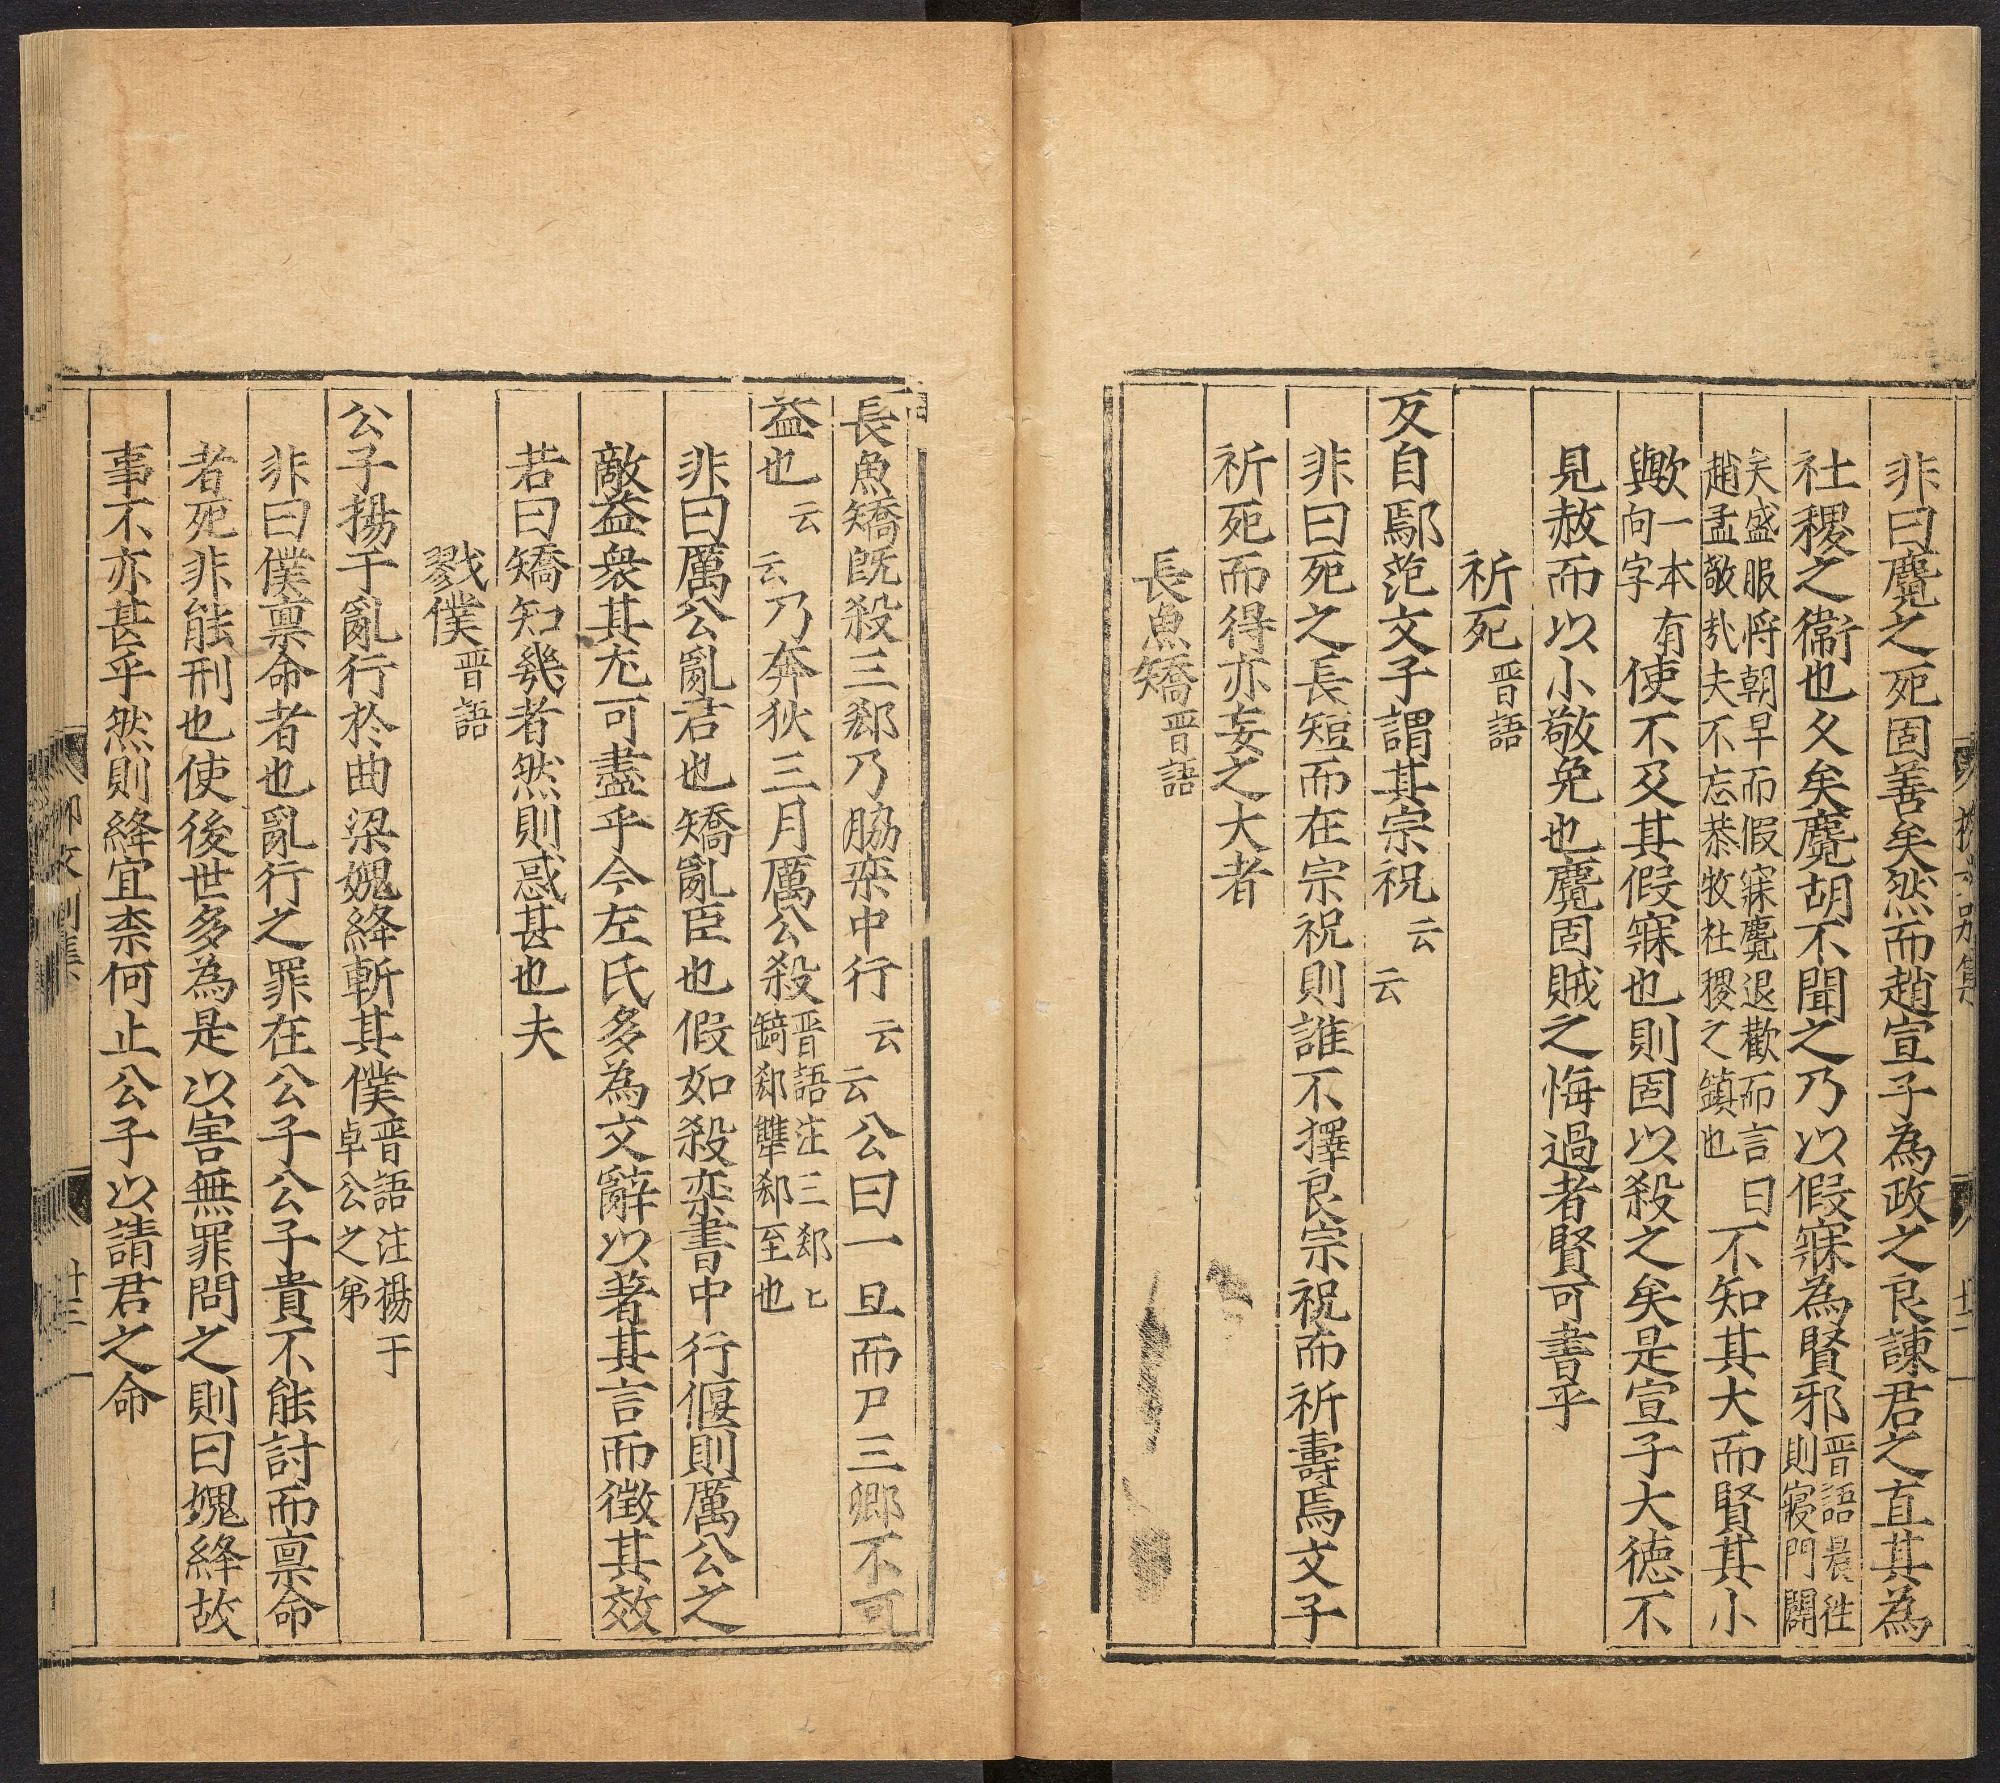 非曰麑之死固善矣然而趙宣子為政之良諫君之直其為
社稷之衞也久矣麑胡不聞之乃以假寐為賢邪晋語晨往則寢門闢
矣盛服將朝早而假寐麑退歎而言曰趙孟敬㢤夫不忘恭牧社稷之鎮也不知其大而賢其小
歟一本有向字使不及其假寐也則固以殺之矣是宣子大徳不
見赦而以小敬免也麑固賊之悔過者賢可書乎
祈死晋語
反自鄢范文子謂其宗祝云云
非曰死之長短而在宗祝則誰不擇良宗祝而祈壽焉文子
祈死而得亦妄之大者
長魚矯晋語
長魚矯旣殺三郄乃脇栾中行云云公曰一旦而尸三卿不可
益也云云乃奔狄三月厲公殺晋語注三郄匕錡郄犫郄至也
非曰厲公亂君也矯亂臣也假如殺栾書中行偃則厲公之
敵益衆其尢可盡乎今左氏多為文辭以著其言而徴其效
若曰矯知幾者然則惑甚也夫
戮僕晋語
公子揚干亂行於曲梁䰟絳斬其僕晋語注揚于卓公之弟
非曰僕禀命者也亂行之罪在公子公子貴不能討而禀命
者死非能刑也使後世多為是以害無罪問之則曰䰟絳故
事不亦甚乎然則絳宜柰何止公子以請君之命
柳文別集
十三